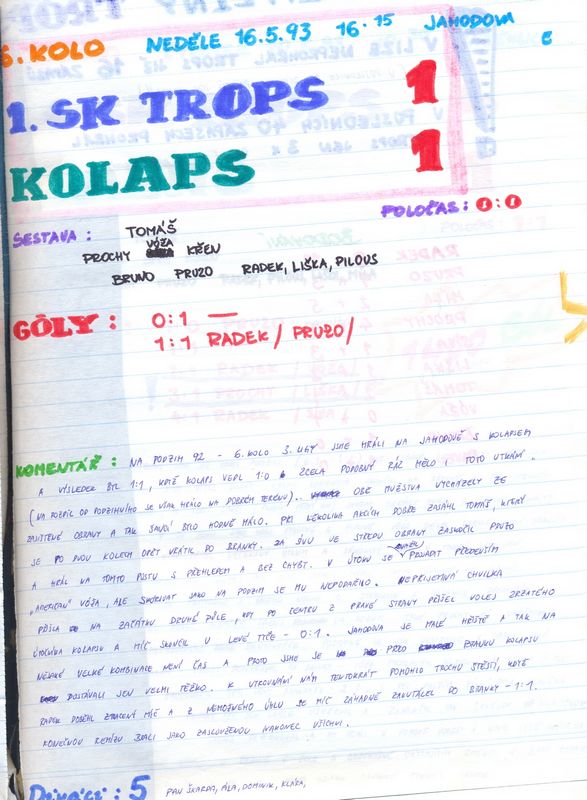 6. KOLO NEDĚLE 16.5.93 16:15 JAHODOVA
1. SK TROPS 1
KOLAPS 1
POLOČAS: 0:1
SESTAVA: TOMÁŠ
PROCHY VÓŽA KŘEN
BRUNO PRUZO RADEK, LIŠKA, PILOUS
GÓLY: 0:1 —
1:1 RADEK /PRUZO/
KOMENTÁŘ: NA PODZIM 92 - 6. KOLO 3. LIGY JSME HRÁLI NA JAHODOVÉ S KOLAPSEM
A VÝSLEDEK BYL 1:1, KDYŽ KOLAPS VEDL 1:0. ZCELA PODOBNÝ RÁZ MĚLO I TOTO UTKÁNÍ.
(NA ROZDÍL OD PODZIMNÍHO SE VŠAK HRÁLO NA DOBRÉM TERÉNU). OBĚ MUŽSTVA VYCHÁZELY ZE
ZAJIŠTĚNÉ OBRANY A TAK ŠANCÍ BYLO HODNĚ MÁLO. PŘI NĚKOLIKA AKCÍCH DOBŘE ZASÁHL TOMÁŠ, KTERÝ
SE PO DVOU KOLECH OPĚT VRÁTIL DO BRANKY. ZA ŠÍVU VE STŘEDU OBRANY ZASKOČIL PRUZO
A HRÁL NA TOMTO POSTU S PŘEHLEDEM A BEZ CHYBY. V ÚTOKU SE SNAŽIL PROJADIT PŘEDEVŠÍM
"AMERIČAN" VÓŽA, ALE SKÓROVAT JAKO NA PODZIM SE MU NEPODAŘILO. NEPŘÍJEMNÁ CHVILKA
PŘIŠLA NA ZAČÁTKU DRUHÉ PŮLE, KDY PO CENTRU Z PRAVÉ STRANY PŘIŠEL VOLEJ ZRZATÉHO
ÚTOČNÍKA KOLAPSU A MÍČ SKONČIL U LEVÉ TYČE - 0:1. JAHODOVA JE MALÉ HŘIŠTĚ A TAK NA
NĚJAKÉ VELKÉ KOMBINACE NENÍ ČAS A PROTO JSME SE PŘED BRANKU KOLAPSU
DOSTÁVALI JEN VELMI TĚŽKO. K VYROVNÁNÍ NÁM TENTOKRÁT POMOHLO TROCHU ŠTĚSTÍ, KDYŽ
RADEK DOBĚHL ZTRACENÝ MÍČ A Z NEMOŽNÉHO ÚHLU SE MÍČ ZÁHADNĚ ZAKUTÁLEL DO BRANKY - 1:1.
KONEČNOU REMÍZU BRALI JAKO ZASLOUŽENOU NAKONEC VŠICHNI.
DIVÁCI: 5 PAN ŠKARDA, PÁLA, DOMINIK, KLÁRA,